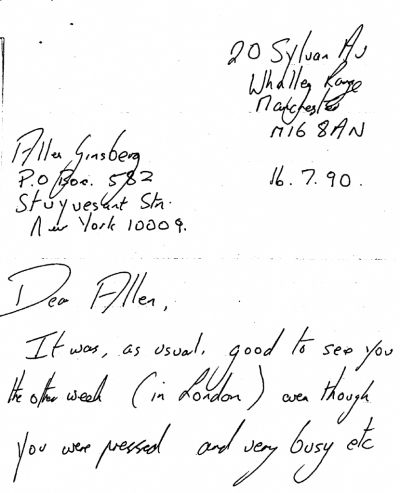 20 Sylvan Av
Whalley Range
Manchester
M16 8AN
Allen Ginsberg
P.O Box. 582
Stuyvesant Stn.
New York 10009.
16.7.90.
Dear Allen,
It was, as usual, good to see you
the other week (in London) even though
you were pressed and very busy etc